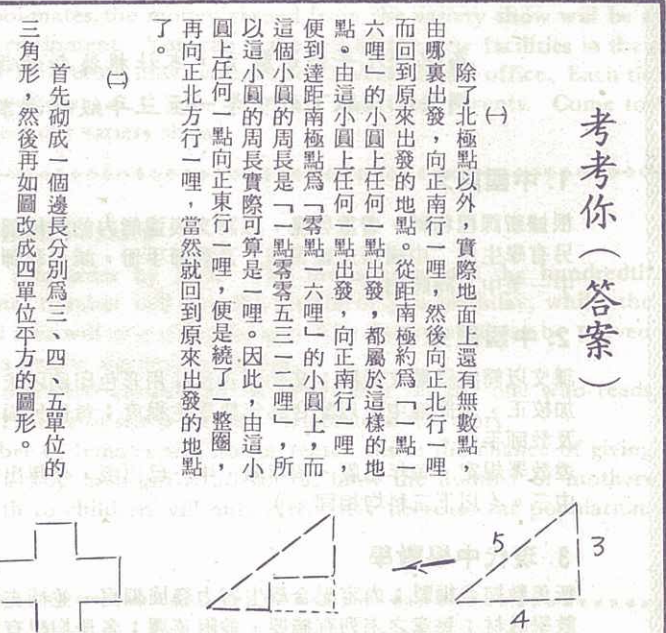 考考你（答案）
㈠
除了北極點以外，實際地面上還有無數點，
由哪裏出發，向正南行一哩，然後向正北行一哩
而回到原來出發的地點。從距南極約爲「一點一
六哩」的小圓上任何一點出發，都屬於這樣的地
點。由這小圓上任何一點出發，向正南行一哩，
便到達距南極點爲「零點一六哩」的小圓上，而
這個小圓的周長是「一點零零五三一二哩」，所
以這小圓的周長實際可算是一哩。因此，由這小
圓上任何一點向正東行一哩，便是繞了一整圈，
再向正北方行一哩，當然就回到原來出發的地點
了。
㈡
首先砌成一個邊長分別爲三、四、五單位的
三角形，然後再如圖改成四單位平方的圖形。
5
3
4